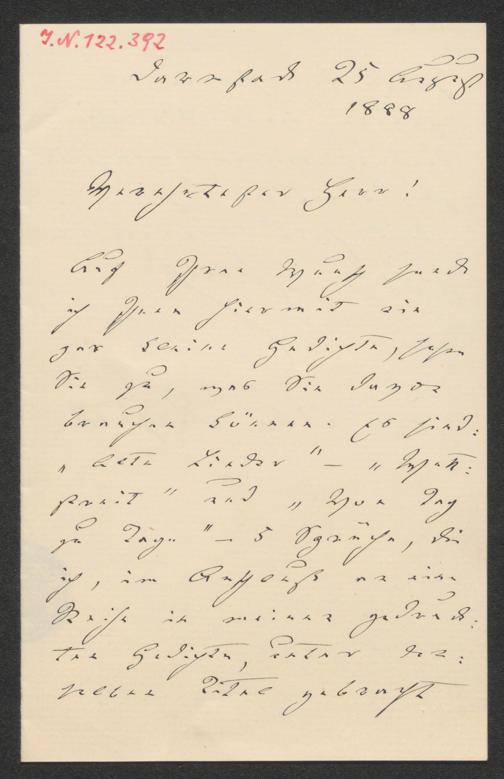 I.N. 122.392
Darmstadt 25 August
1888
Verehrtester Herr!
Auf Ihren Wunsch sende
ich Ihnen hiermit ein
paar kleine Gedichte, sehen
Sie zu, was Sie davon
brauchen können. Es sind:
„Alte Lieder" – „Wett-
streit" und „Von Tag
zu Tage" – 5 Sprüche, die
ich, im Anschluß an eine
Reihe in meinen gedruck:
ten Gedichten, unter dem:
selben Titel gebracht